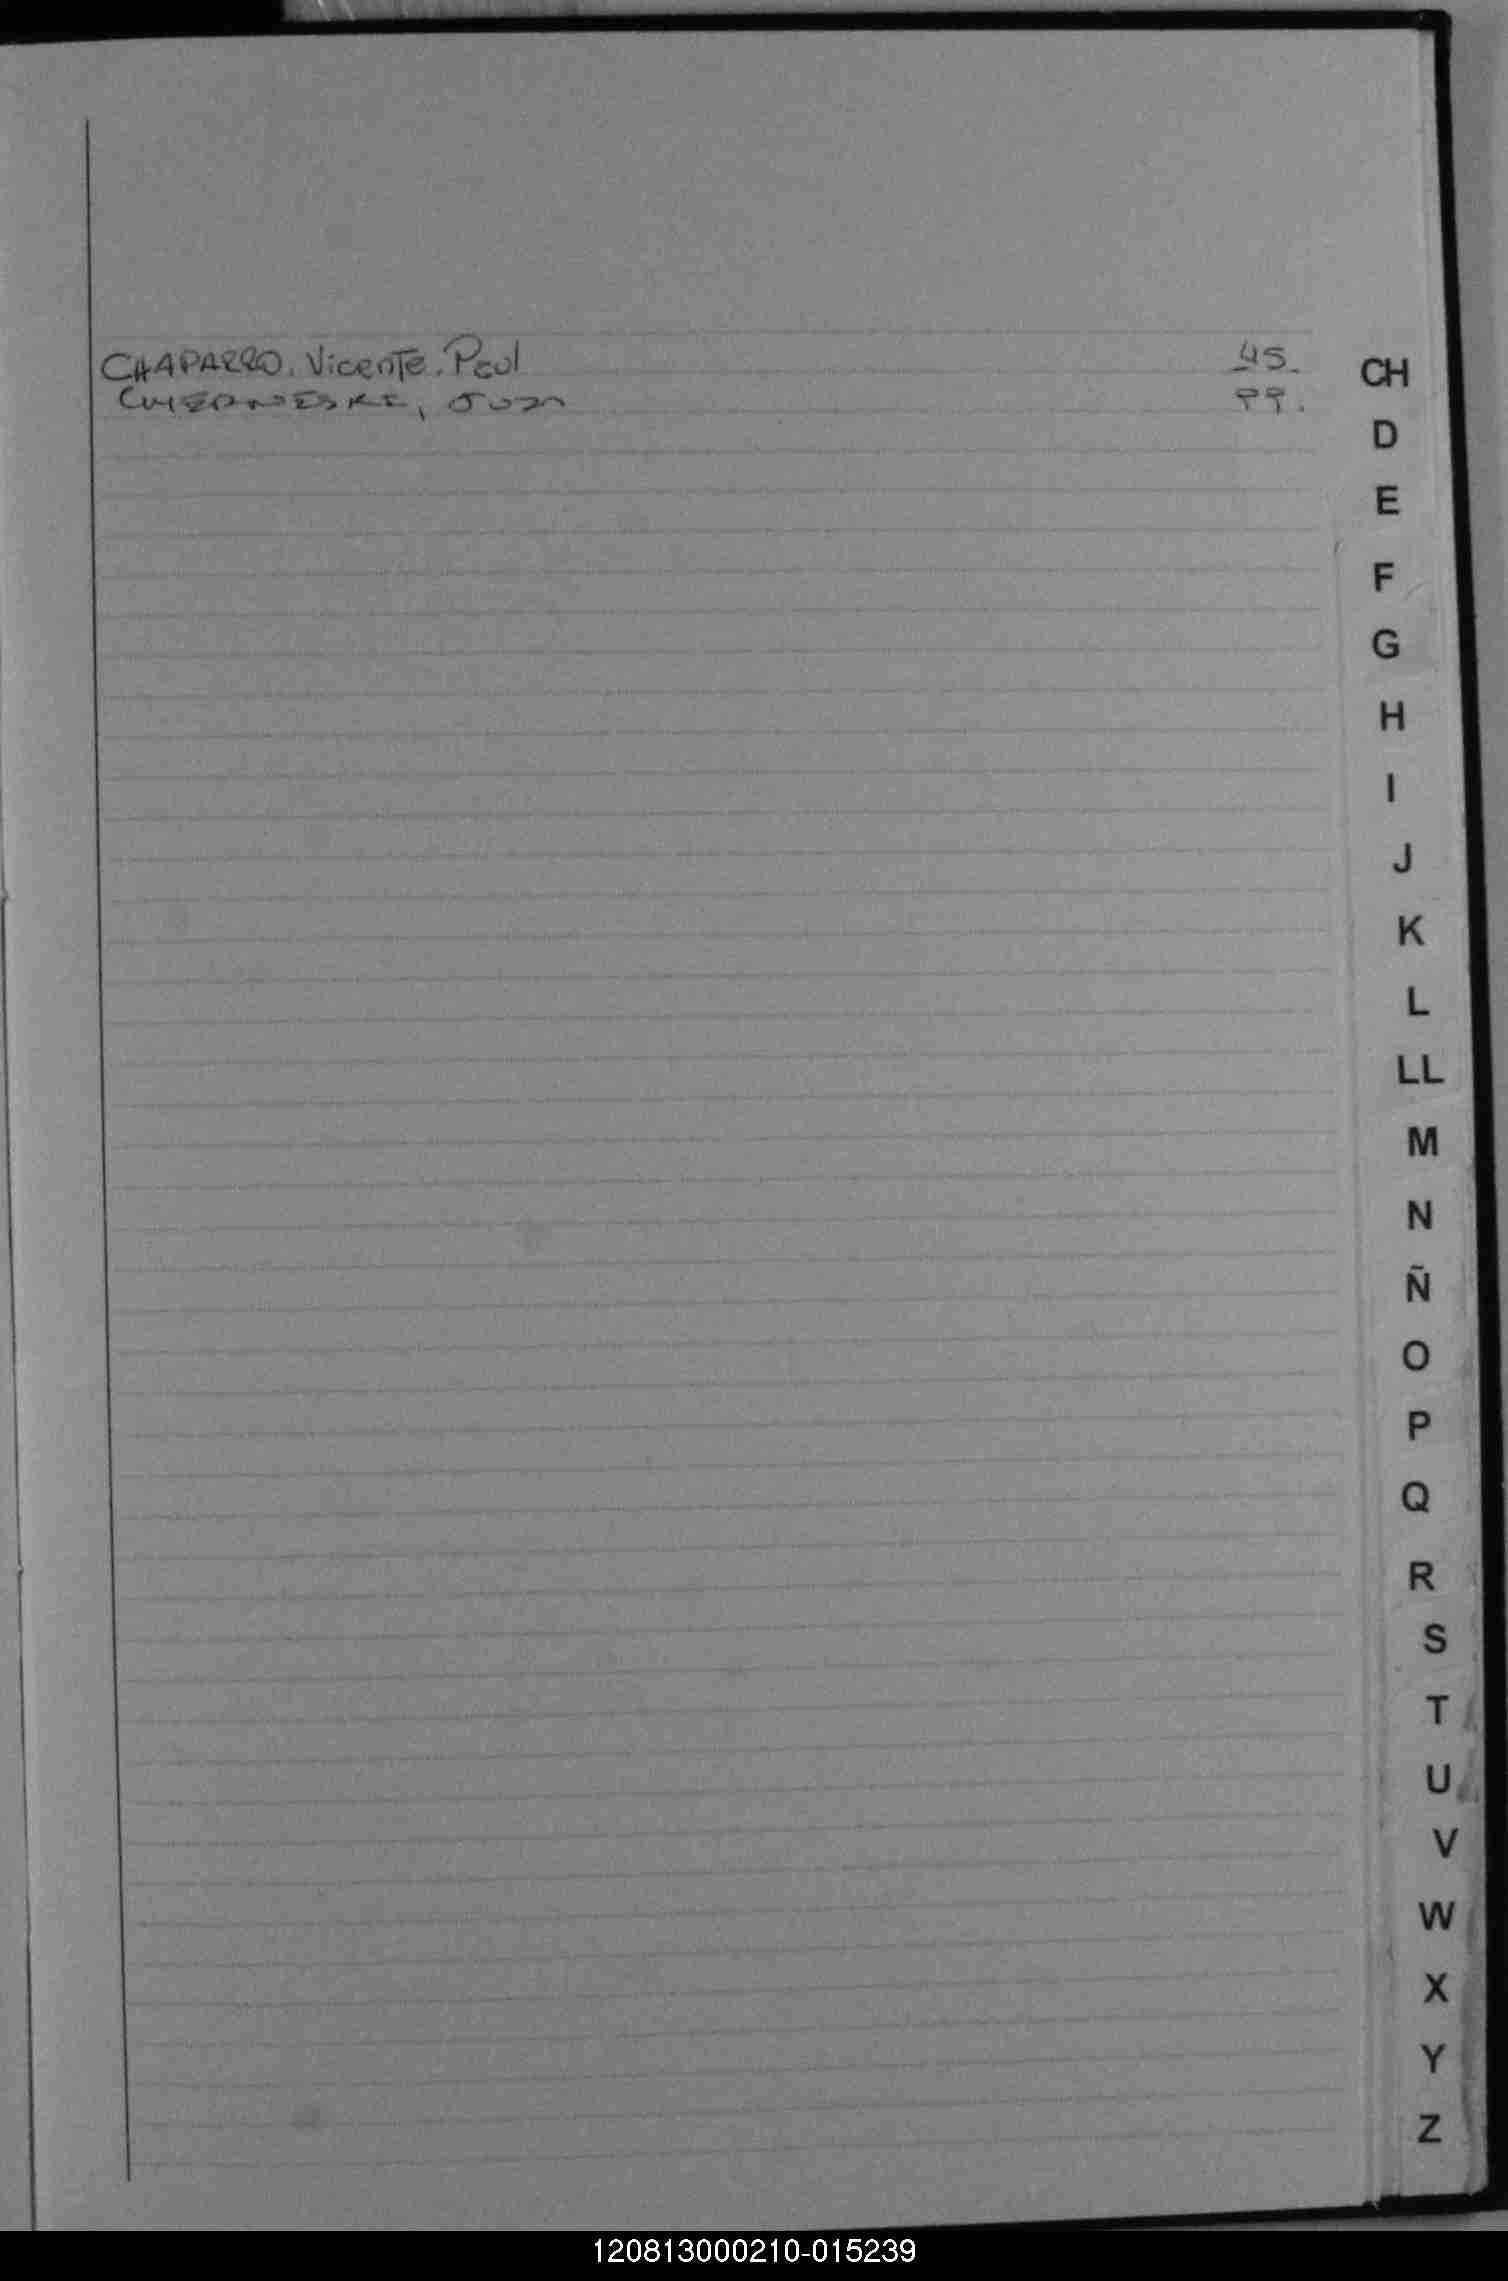 CHAPARRO. Vicente. Paul 45.
CHIERNESKI, Juan 99.
CH
D
E
F
G
H
I
J
K
L
LL
M
N
Ñ
O
P
Q
R
S
T
U
V
W
X
Y
Z
120813000210-015239